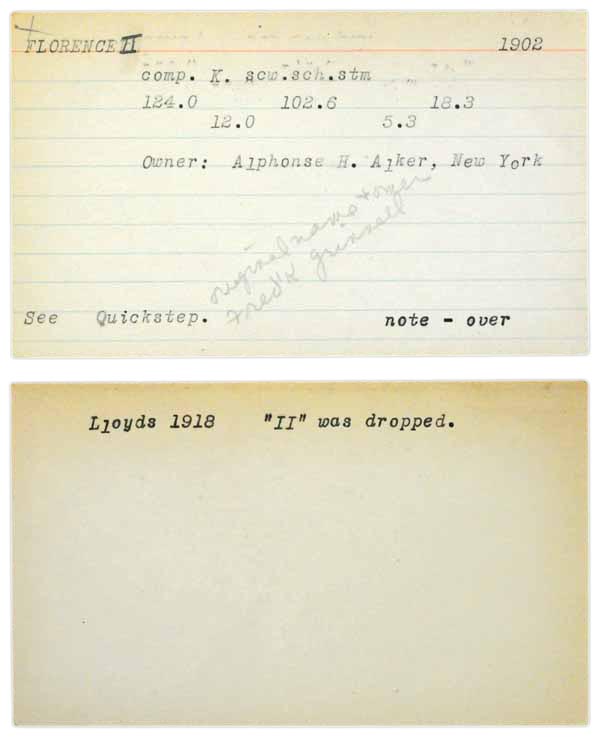 FLORENCE II 1902
comp. K. scw.sch.stm
124.0 102.6 18.3
12.0 5.3
Owner: Alphonse H. Alker, New York
original name + owner
Fred'k Grinnell
See Quickstep. note - over
Lloyds 1918 "II" was dropped.